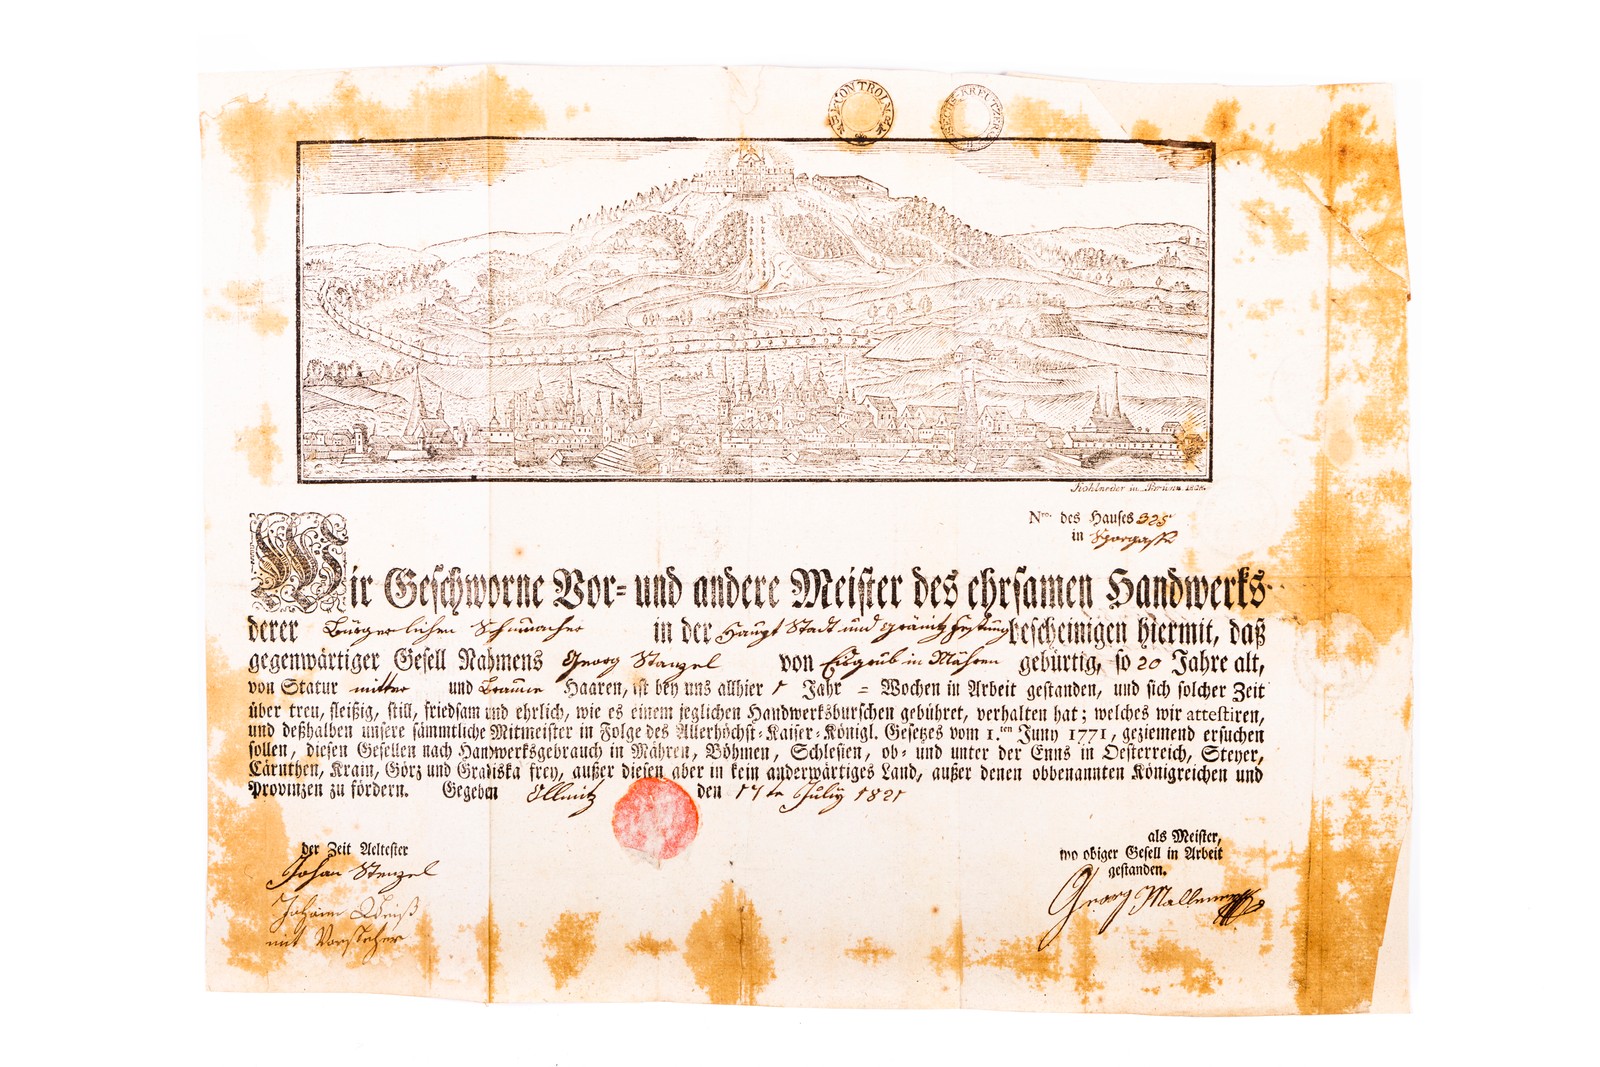 CONTROL
SECHS KREUTZER
Kohlneder in Brünn 182
Nro. des Hauses 325
in
Wir Geschworne Vor- und andere Meister des ehrsamen Handwerks
derer Bürgerlichen Schumacher in der Haupt Stadt und gränitz festung bescheinigen hiermit, daß
gegenwärtiger Gesell Nahmens Georg Stanzel von Eisgrub in Mähren gebürtig, so 20 Jahre alt,
von Statur mitter und Braune Haaren, ist bey uns allhier 1 Jahr = Wochen in Arbeit gestanden, und sich solcher Zeit
über treu, fleißig, still, friedsam und ehrlich, wie es einem jeglichen Handwerksburschen gebühret, verhalten hat; welches wir attestiren,
und deßhalben unsere sämmtliche Mitmeister in Folge des Allerhöchst-Kaiser-Königl. Gesetzes vom 1.ten Juny 1771, geziemend ersuchen
sollen, diesen Gesellen nach Handwerksgebrauch in Mähren, Böhmen, Schlesien, ob- und unter der Enns in Oesterreich, Steyer,
Cärnthen, Krain, Görz und Gradiska frey, außer diesen aber in kein anderwärtiges Land, außer denen obbenannten Königreichen und
Provinzen zu fördern. Gegeben Ollmitz den 17te Juliy 1821
der Zeit Aeltester
Johan Stenzel
Johann Weiß
mit Vorsteher
als Meister,
wo obiger Gesell in Arbeit
gestanden.
Georg